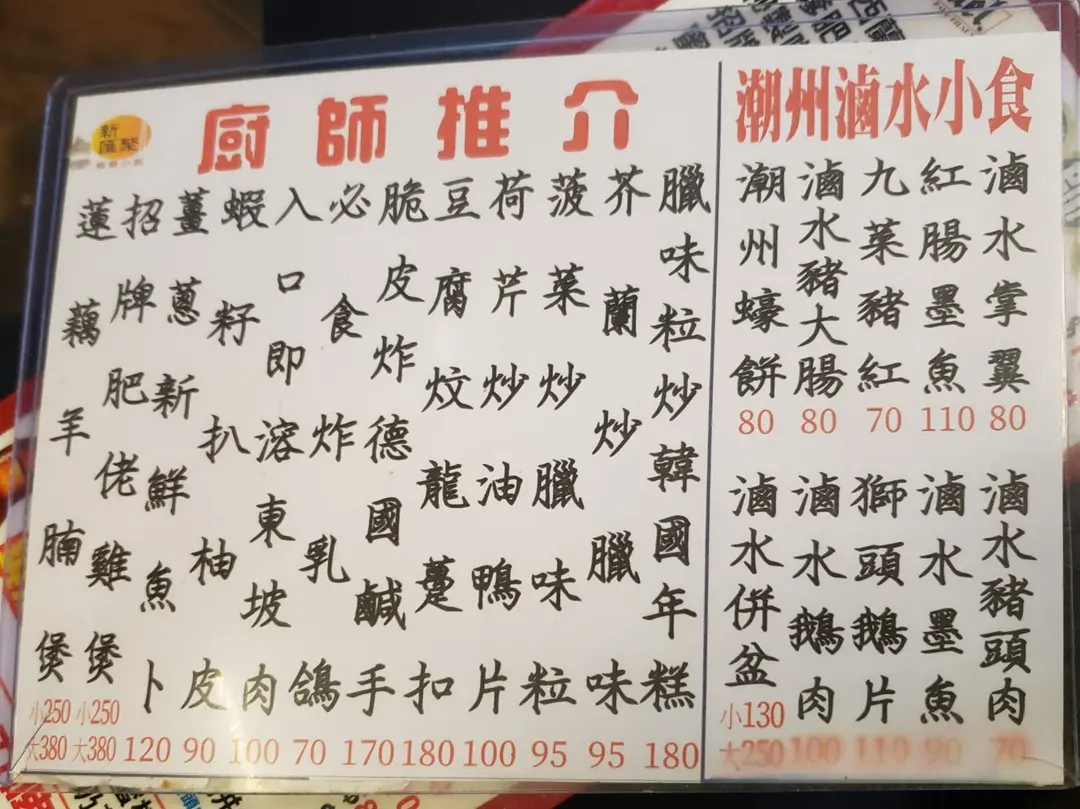 新匯聚
廚師推介
臘味粒炒韓國年糕 180
芥蘭炒臘味 95
菠菜炒臘味粒 95
荷芹炒油鴨片 100
豆腐炆龍躉扣 180
脆皮炸德國鹹手 170
必食炸乳鴿 70
入口即溶東坡肉 100
蝦籽扒柚皮 90
薑蔥新鮮魚卜 120
招牌肥佬雞煲 小250 大380
蓮藕羊腩煲 小250 大380
潮州滷水小食
滷水掌翼 80
紅腸墨魚 110
九菜豬紅 70
滷水豬大腸 80
潮州蠔餅 80
滷水豬頭肉 70
滷水墨魚 90
獅頭鵝片 110
滷水鵝肉 100
滷水併盆 小130 大250